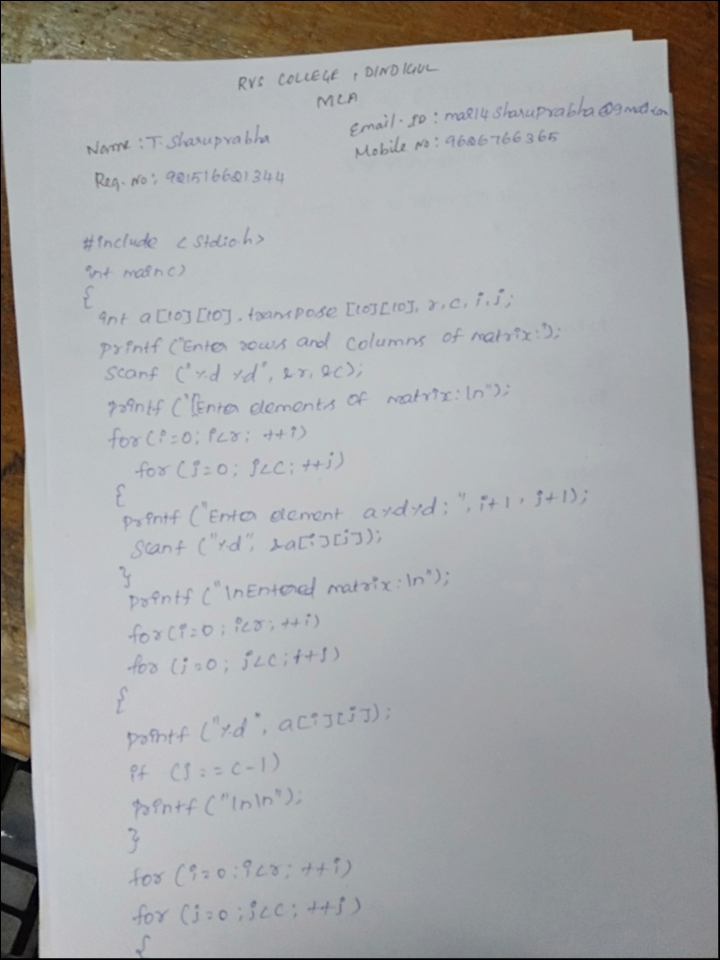 RVS COLLEGE, DINDIGUL
MCA
Name : T. Sharuprabha
Email-ID : mag14sharuprabha@gmail.com
Reg. No: 921516621344
Mobile No : 9626766365
#include <stdio.h>
int main()
{
int a[10][10], transpose [10][10], r, c, i, j;
printf ("Enter rows and columns of matrix:");
scanf ("%d %d", &r, &c);
printf ("\Enter elements of matrix: \n");
for (i=0; i<r; ++i)
for (j=0; j<c; ++j)
{
printf ("Enter element a%d%d: ", i+1, j+1);
scanf ("%d", &a[i][j]);
}
printf ("\nEntered matrix: \n");
for (i=0; i<r; ++i)
for (j=0; j<c; ++j)
{
printf ("%d", a[i][j]);
if (j == c-1)
printf ("\n\n");
}
for (i=0; i<r; ++i)
for (j=0; j<c; ++j)
{